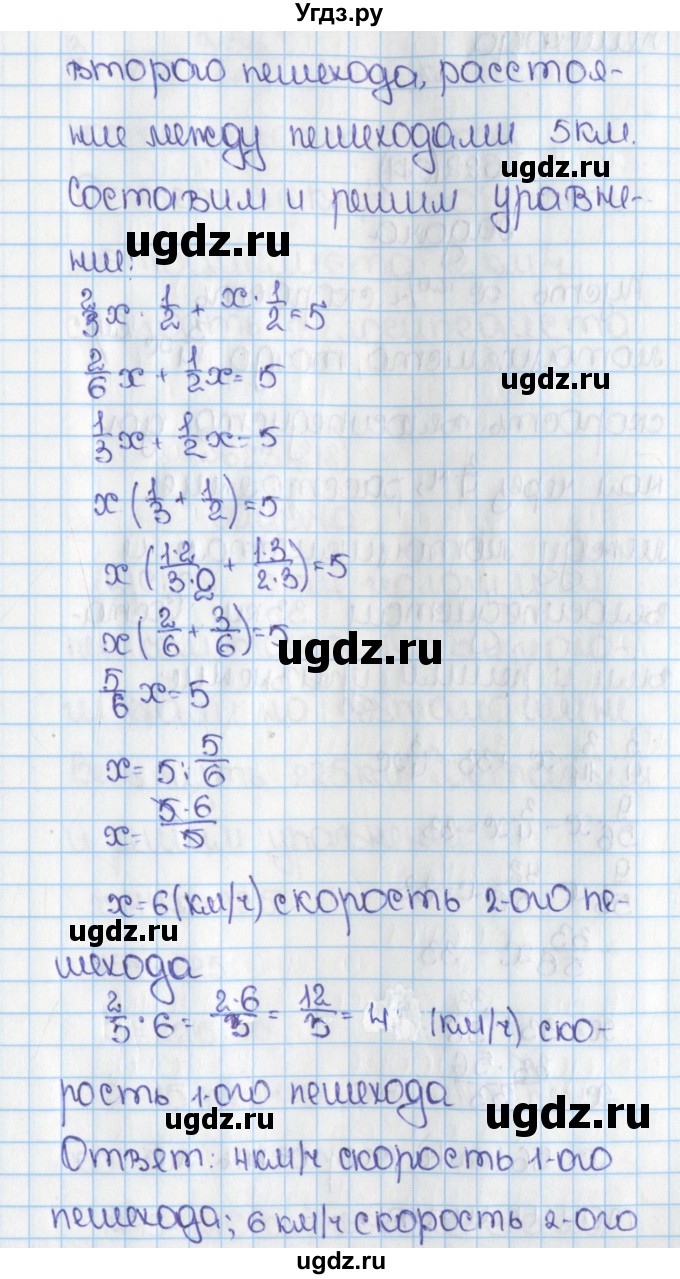 Угдз.ру
второго пешехода, расстоя-
ние между пешеходами 5км.
ugdz.ru
Составим и решим уравне-
ugdz.ru
ние:
2/3 x · 1/2 + x · 1/2 = 5
2/6 x + 1/2 x = 5
ugdz.ru
1/3 x + 1/2 x = 5
x (1/3 + 1/2) = 5
x (1·2/3·2 + 1·3/2·3) = 5
x (2/6 + 3/6) = 5
ugdz.ru
5/6 x = 5
x = 5 : 5/6
x = 5·6/5
x = 6 (км/ч) скорость 2-ого пе-
ugdz.ru
шехода
2/3 · 6 = 2·6/3 = 12/3 = 4 (км/ч) ско-
рость 1-ого пешехода
ugdz.ru
ugdz.ru
Ответ: 4км/ч скорость 1-ого
пешехода; 6 км/ч скорость 2-ого
ugdz.ru